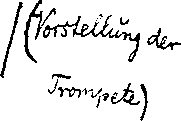 /(Vorstellung der
Trompete)